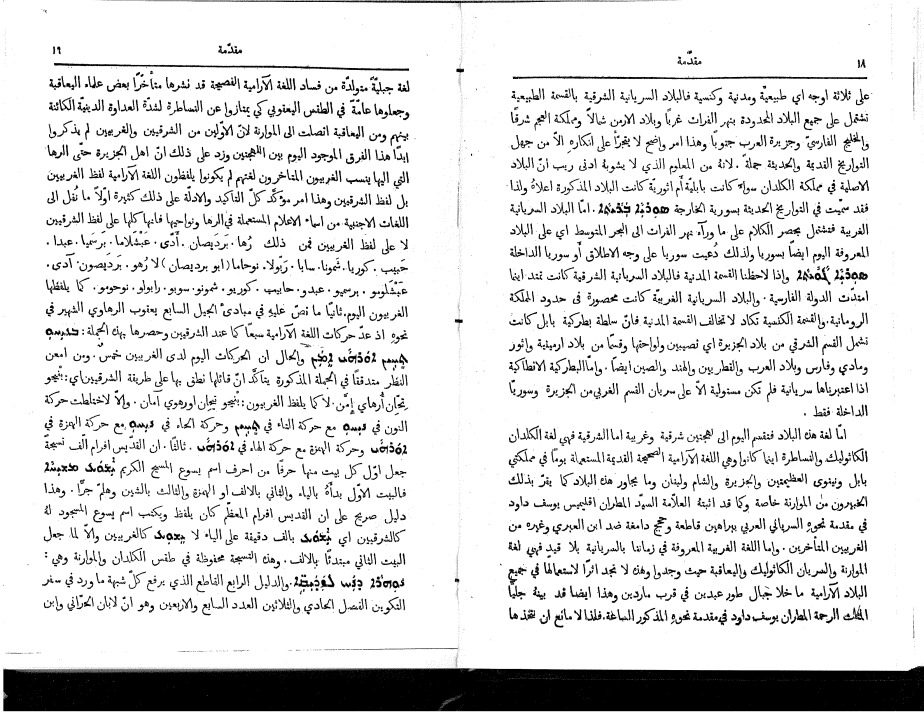 ١٨
مقدّمة
على ثلاثة اوجه اي طبيعيَّة ومدنية وكنسية فالبلاد السريانية الشرقية بالقسمة الطبيعية
تشتمل على جميع البلاد المحدودة بنهر الفرات غربًا وبلاد الارمن شمالًا ومملكة العجم شرقًا
والخليج الفارسيّ وجزيرة العرب جنوبًا وهذا امر واضح لا يتجرَّأ على انكاره الَّا من جهل
التواريخ القديمة والحديثة جملةً. لانه من المعلوم الذي لا يشوبهُ ادنى ريب انّ البلاد
الاصلية في مملكة الكلدان سواء كانت بابليَّة أم اثورية كانت البلاد المذكورة اعلاهُ ولذا
فقد سمّيت في التواريخ الحديثة بسورية الخارجة ܣܘܪܝܐ ܒܪܝܬܐ. امَّا البلاد السريانية
الغربية فتشتمل بحصر الكلام على ما ورآء نهر الفرات الى البحر المتوسط اي على البلاد
المعروفة اليوم ايضًا بسوريا ولذلك دُعيت سوريا على وجه الاطلاق أو سوريا الداخلة
ܣܘܪܝܐ ܓܘܝܬܐ وإذا لاحظنا القسمة المدنية فالبلاد السريانية الشرقية كانت تمتد اينما
امتدَّت الدولة الفارسية. والبلاد السريانية الغربية كانت محصورة في حدود المملكة
الرومانية. والقسمة الكنسية تكاد لا تخالف القسمة المدنية فانّ سلطة بطركية بابل كانت
تشمل القسم الشرقي من بلاد الجزيرة اي نصيبين ولواحتها وقسمًا من بلاد ارمينية واثور
ومادي وفارس وبلاد العرب والقطريين والهند والصين ايضًا. وإمَّا البطركية الانطاكية
اذا اعتبرناها سريانية فلم تكن مستولية الَّا على سريان القسم الغربي من الجزيرة وسوريَّا
الداخلة فقط.
امَّا لغة هذه البلاد فتنقسم اليوم الى لهجتين شرقية وغربية اما الشرقية فهي لغة الكلدان
الكاثوليك والنساطرة اينما كانوا وهي اللغة الآرامية الصحيحة القديمة المستعملة يومًا في مملكتي
بابل ونينوى العظيمتين والجزيرة والشام ولبنان وما يجاور هذه البلاد كما يقرّ بذلك
الخبيرون من الموارنة خاصة وكما قد اثبتهُ العلَّامة السيّد المطران اقليميس يوسف داود
في مقدمة نحوهِ السرياني العربي ببراهين قاطعة وحجج دامغة ضد ابن العبري وغيره من
الغربيين المتأخرين. وإما اللغة الغربية المعروفة في زماننا بالسريانية بلا قيد فهي لغة
الموارنة والسريان الكاثوليك واليعاقبة حيث وجدوا وهذه لا نجد اثرًا لاستعمالها في جميع
البلاد الآرامية ما خلا جبال طور عبدين في قرب ماردين وهذا ايضًا قد بينهُ جليًّا
المثلث الرحمة المطران يوسف داود في مقدمة نحوهِ المذكور السائغة. فلذا لا مانع ان نتخذها
١٩
مقدّمة
لغة جبليَّة متولدة من فساد اللغة الآرامية الفصيحة قد نشرها متأخّرًا بعض علماء اليعاقبة
وجعلوها عامَّة في الطقس اليعقوبي كي يمتازوا عن النساطرة لشدَّة العداوة الدينيَّة الكائنة
بينهم ومن اليعاقبة اتصلت الى الموارنة لانّ الاوّلين من الشرقيين والغربيين لم يذكروا
ابدًا هذا الفرق الموجود اليوم بين اللهجتين وزد على ذلك انّ اهل الجزيرة حتَّى الرها
التي اليها ينسب الغربيون المتأخرون لغتهم لم يكونوا يلفظون اللغة الآرامية لفظ الغربيين
بل لفظ الشرقيين وهذا امر مؤكَّد كلّ التأكيد والادلَّة على ذلك كثيرة اوّلًا ما نُقل الى
اللغات الاجنبية من اسماء الاعلام المستعملة في الرها ونواحيها فانها كلها على لفظ الشرقيين
لا على لفظ الغربيين فمن ذلك رُها. بَرديصان. أدَّى. عبشلاما. بَرسَميا. عبدا.
حَبيب. كوريا. شَمونا. سابا. رَبّولا. نوحاما (ابو برديصان) لا رُهو. بَرديصون. آدى.
عَبْشلومو. برسميو. عبدو. حابيب. كوريو. شمونو. سوبو. رابولو. نوحومو. كما يلفظها
الغربيون اليوم. ثانيًا ما نصّ عليهِ في مبادئ الجيل السابع يعقوب الرهاوي الشهير في
نحوهِ اذ عدّ حركات اللغة الآرامية سبعًا كما عند الشرقيين وحصرها بهذه الجملة:
والحال ان الحركات اليوم لدى الغربيين خمسٌ. ومن امعن
النظر متدققًا في الجملة المذكورة يتأكَّد انّ قائلها نطق بها على طريقة الشرقيين اي:
أُرهاي إمَّن. لا كما يلفظ الغربيون: اورهوي آمان. والَّا لاختلطت حركة
النون في مع حركة التاء في وحركة الحاء في مع حركة الهمزة في
وحركة الهمزة مع حركة الهاء في. ثالثًا. ان القديس افرام الَّف تسبحةً
جعل اوّل كل بيت منها حرفًا من احرف اسم يسوع المسيح الكريم ܝܫܘܥ ܡܫܝܚܐ
فالبيت الاوّل بدأهُ بالياء والثاني بالالف او الهمزة والثالث بالشين وهلمّ جرًّا. وهذا
دليل صريح على ان القديس افرام المعظَّم كان يلفظ ويكتب اسم يسوع المسجود لهُ
كالشرقيين اي بالف دقيقة على الياء لا كالغربيين والَّا لما جعل
البيت الثاني مبتدئًا بالالف. وهذه التسبحة محفوظة في طقس الكلدان والموارنة وهي:
والدليل الرابع القاطع الذي يرفع كلّ شبهة ما ورد في سفر
التكوين الفصل الحادي والثلاثين العدد السابع والاربعين وهو انّ لابان الحرَّاني وابن